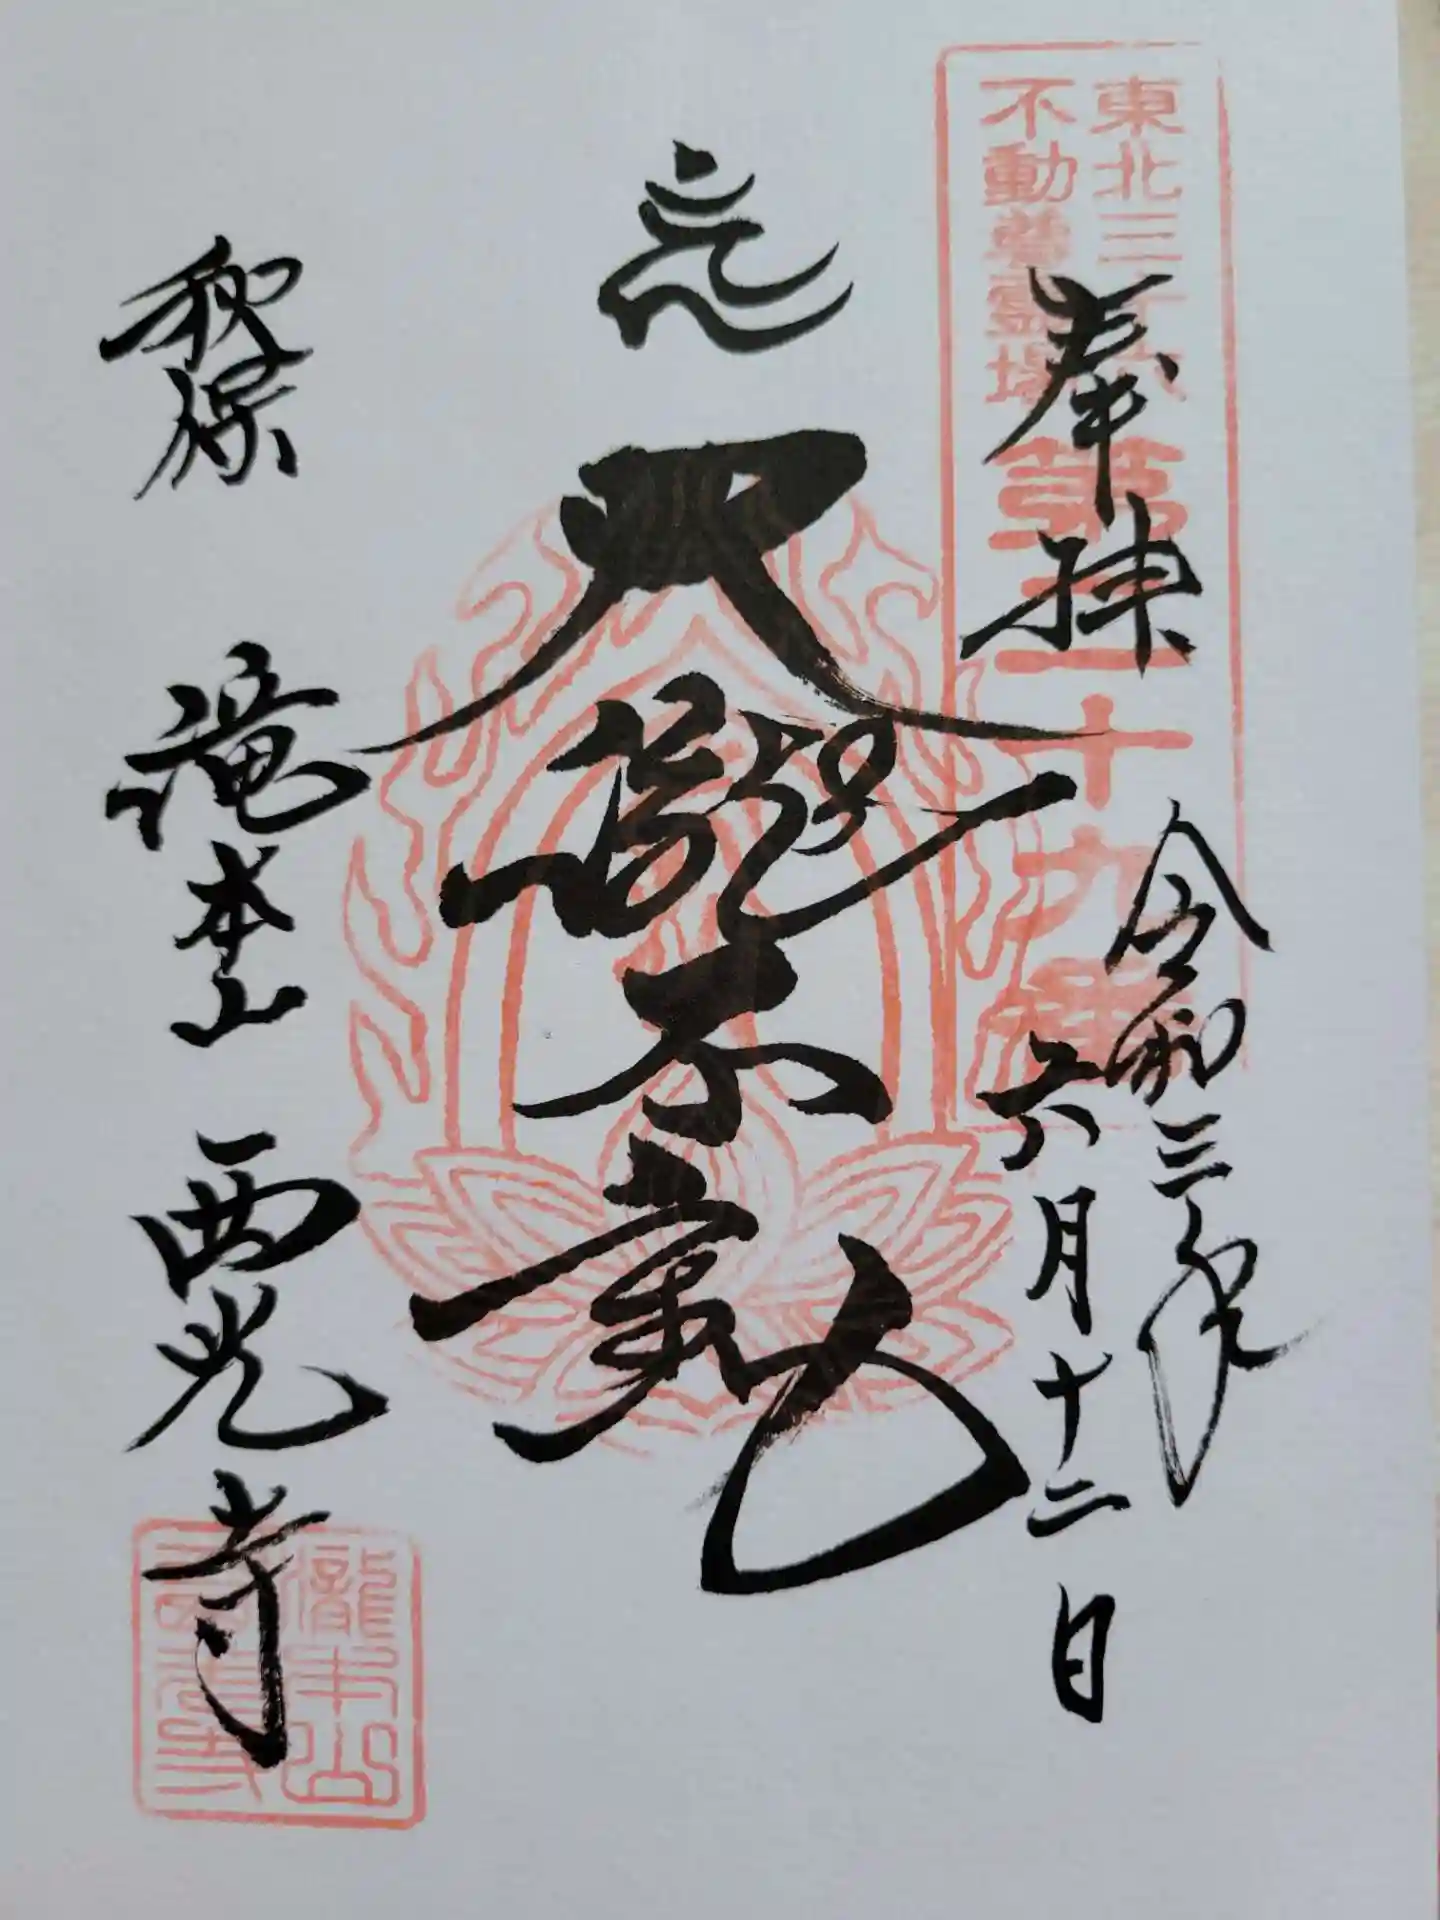 東北三十六
不動尊霊場
第二十九番
奉拝
令和三年
六月十二日
大瀧不動
秋保
滝本山
西光寺
瀧本山
西光寺